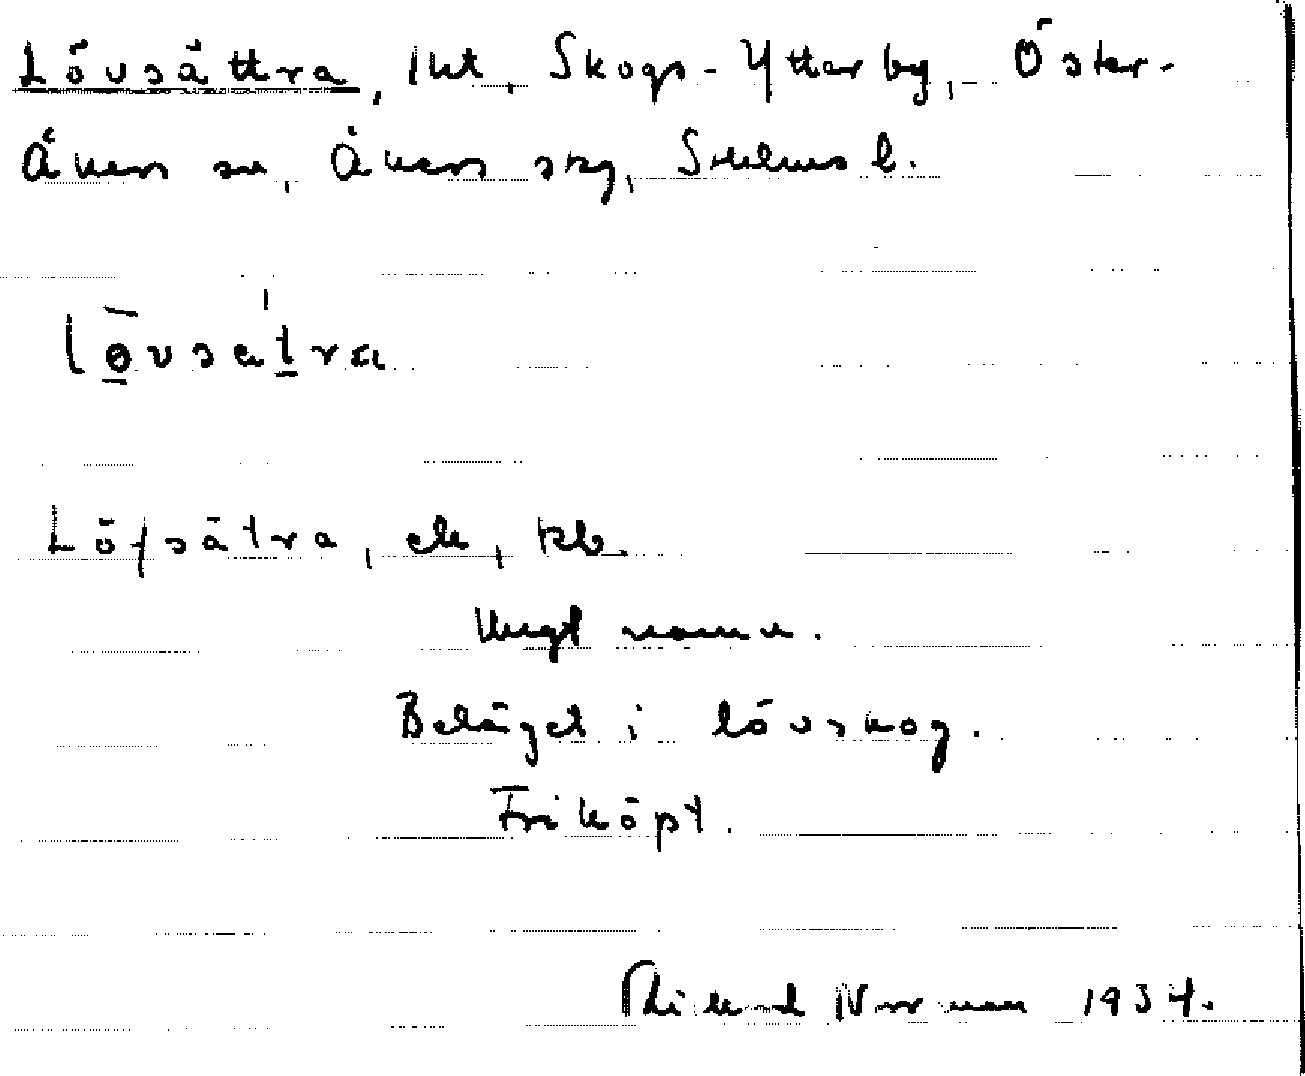 Lövsättra, lht, Skogs-Ytterby, Öster-
Åkers sn, Åkers skg, Sthlms l.
lø̄vsätra
Löfsätra, ek, kb.
Ungt namn.
Beläget i lövskog.
Friköpt.
Rikard Norrman 1934.